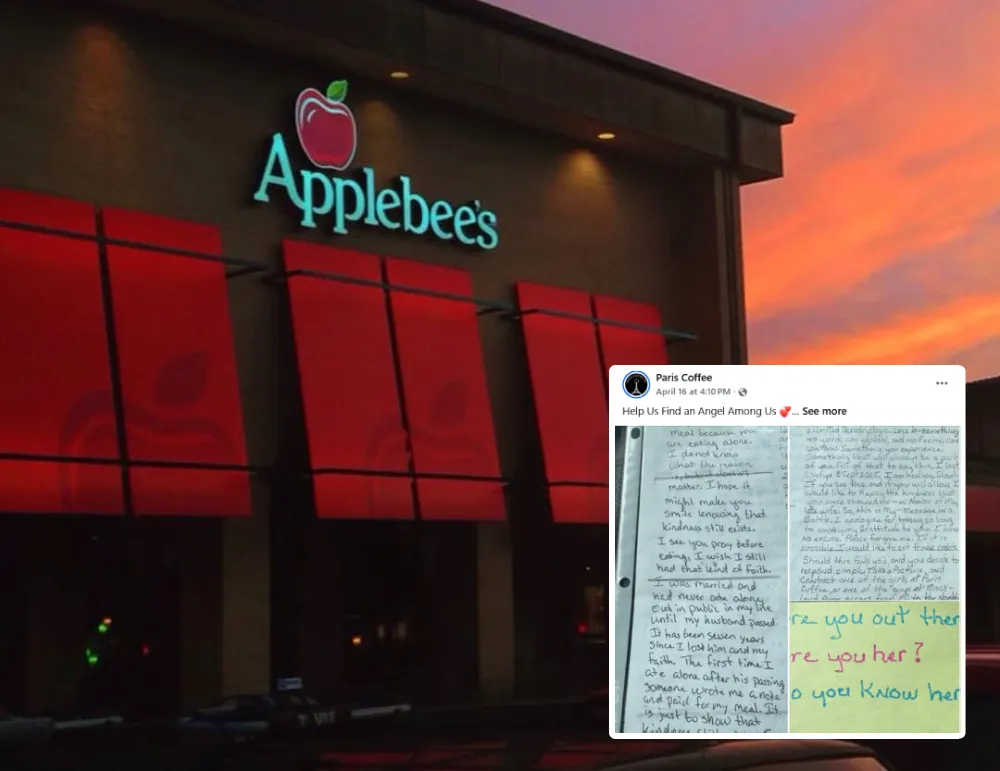 Applebee's
Paris Coffee
April 16 at 4:10 PM
Help Us Find an Angel Among Us 💞... See more
meal because you
are eating alone.
I do not know
what the reason
is, but it doesn't
matter. I hope it
might make you
smile knowing that
kindness still exists.
I see you pray before
eating, I wish I still
had that kind of faith.
I was married and
had never ate alone
out in public in my life
until my husband passed.
It has been seven years
since I lost him and my
faith. The first time I
ate alone after his passing
someone wrote me a note
and paid for my meal. It
is just to show that
kindness still
Loss is something
no words can explain, and no feeling can
contain. Something you experience.
Something that will always be a part
of you. All of that to say this. I lost
2025. I am healing slowly
If you see this, and if you will allow, I
would like to Repay the kindness that
you once showed me in Honor of my
late wife. So, this is My message in a
Bottle. I apologize for taking so long
to convey my gratitude to you. I have
no excuse. Please forgive me. If it is
possible I would like to
Should this find you, and you decide to
respond, simply Take a Picture, and
Contact one of the girls at Paris
Coffee, or one of the guys at Black-
re you out ther
re you her?
o you know her